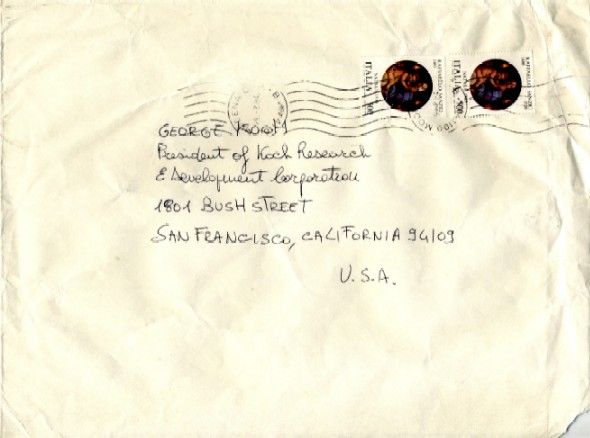 ITALIA
RAFFAELLO SANZIO
ITALIA
GEORGE KOCH
President of Koch Research
& Development Corporation
1801 BUSH STREET
SAN FRANCISCO, CALIFORNIA 94109
U.S.A.